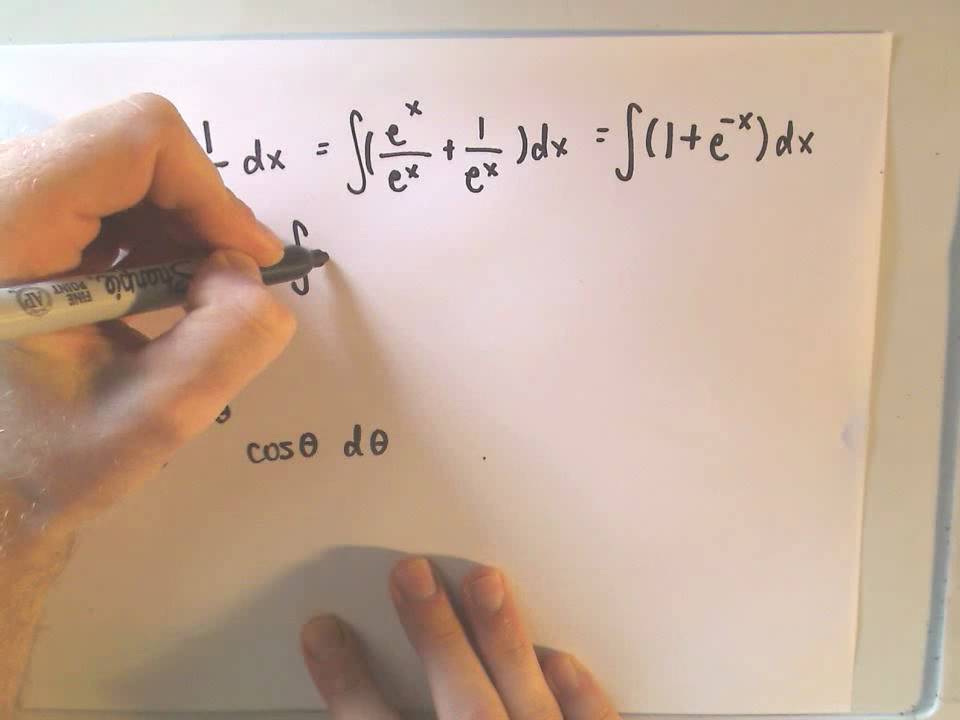 1 dx = ∫(e^x/e^x + 1/e^x)dx = ∫(1+e^-x)dx
∫
Sharpie.
FINE POINT AP
θ
cosθ dθ